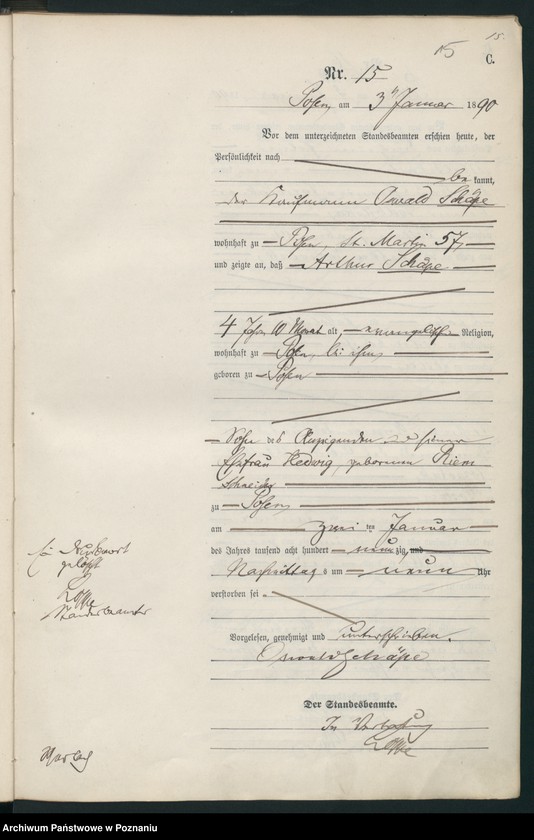 15.
15
C.
Nr. 15
Posen, am 3ten Januar 1890
Vor dem unterzeichneten Standesbeamten erschien heute, der
Persönlichkeit nach
be kannt,
der Kaufmann Oswald Schäpe
wohnhaft zu Posen, St. Martin 57,
und zeigte an, daß Arthur Schäpe
4 Jahr 10 Monat alt, evangelischer Religion,
wohnhaft zu Posen, bei ihm,
geboren zu Posen
Sohn des Anzeigenden und seiner
Ehefrau Hedwig, geborenen Riem
schneider
zu Posen,
am zwei ten Januar
des Jahres tausend acht hundert neun zig, und
Nachmittag s um neun Uhr
verstorben sei
Vorgelesen, genehmigt und unterschrieben.
Oswald Schäpe
Der Standesbeamte.
In Vertretung
Ein Druckwort
gelöscht
Standesbeamter
Archiwum Państwowe w Poznaniu